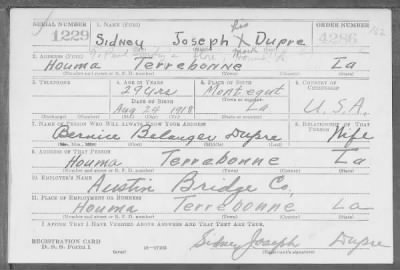 SERIAL NUMBER 1. NAME (PRINT) ORDER NUMBER
1229 Sidney Joseph X Dupre 4286
his
mark
2. ADDRESS (PRINT)
Houma Terrebonne La
(Number and street or R. F. D. number) (Town) (County) (State)
3. TELEPHONE 4. AGE IN YEARS 5. PLACE OF BIRTH 6. COUNTRY OF CITIZENSHIP
24 yrs Montegut
DATE OF BIRTH (Town or county)
Aug 24 1918 La U.S.A.
(Exchange) (Number) (Mo.) (Day) (Yr.) (State or country)
7. NAME OF PERSON WHO WILL ALWAYS KNOW YOUR ADDRESS 8. RELATIONSHIP OF THAT PERSON
Bernice Belanger Dupre Wife
(Mr., Mrs., Miss) (First) (Middle) (Last)
9. ADDRESS OF THAT PERSON
Houma Terrebonne La
(Number and street or R. F. D. number) (Town) (County) (State)
10. EMPLOYER'S NAME
Austin Bridge Co.
11. PLACE OF EMPLOYMENT OR BUSINESS
Houma Terrebonne La
(Number and street or R. F. D. number) (Town) (County) (State)
I AFFIRM THAT I HAVE VERIFIED ABOVE ANSWERS AND THAT THEY ARE TRUE.
REGISTRATION CARD
D. S. S. Form 1 (over) 16-17105 Sidney Joseph Dupre
(Registrant's signature)